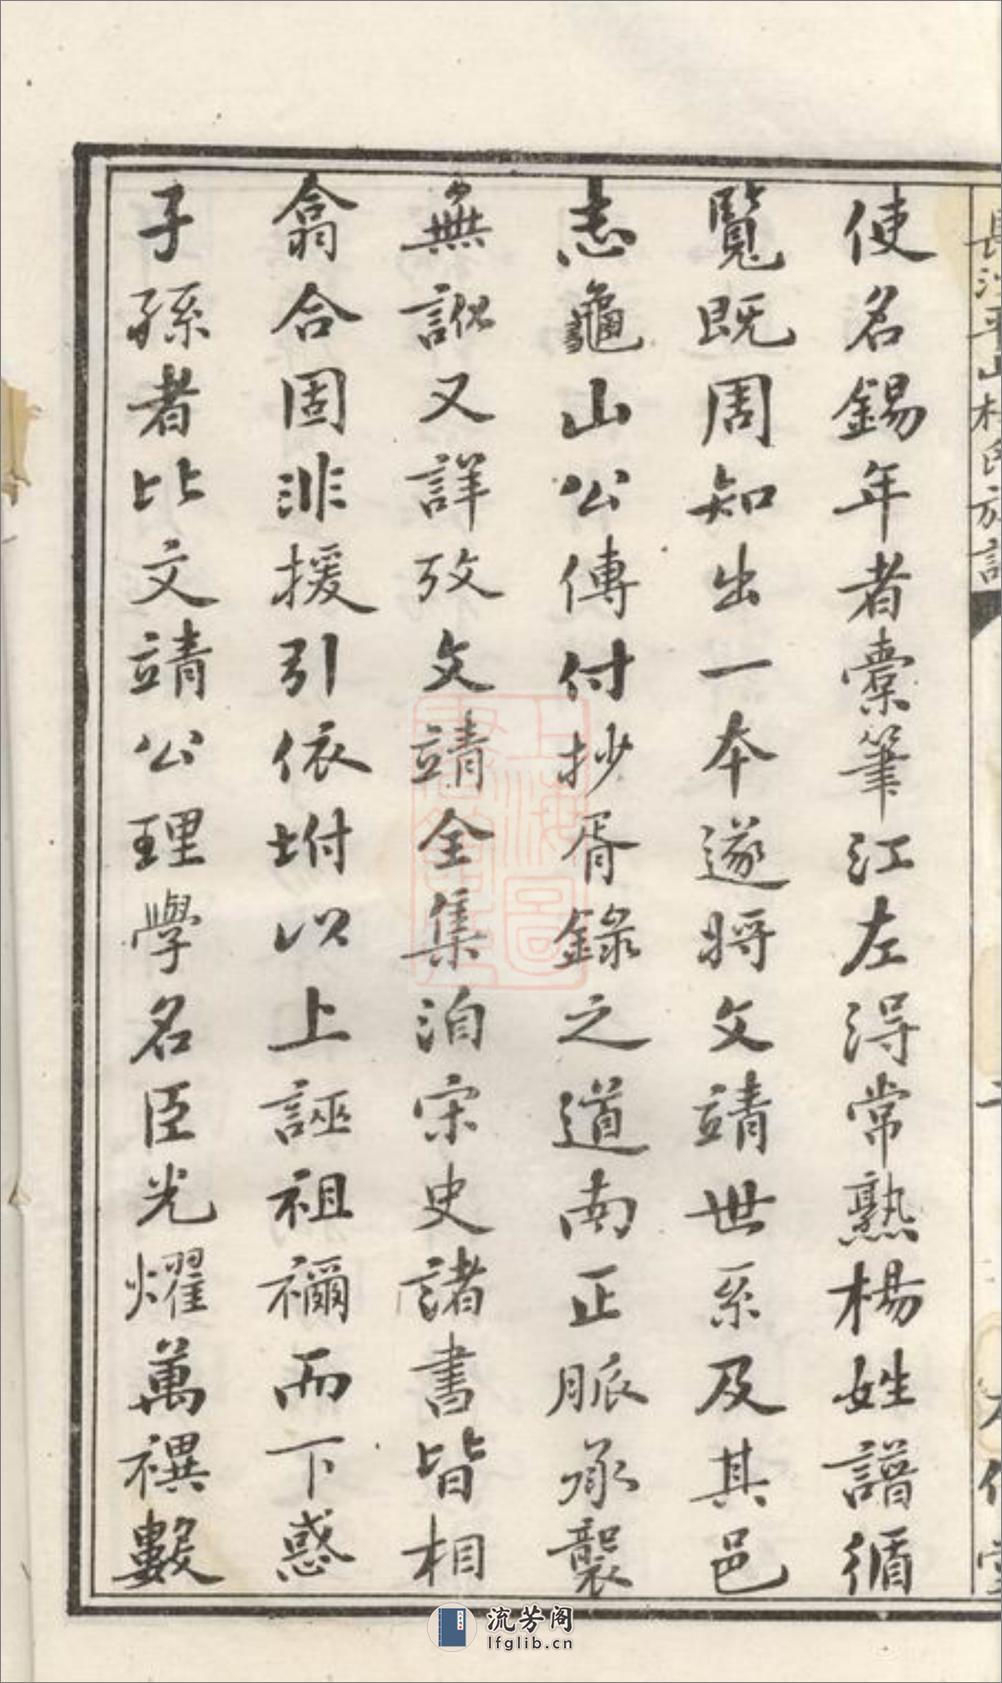 使名錫年者槖筆江左淂常熟楊姓譜循
覽既周知出一本遂將文靖世系及其邑
志龜山公傳付抄胥錄之道南正脈承襲
無訛又詳攷文靖全集洎宋史諸書皆相
翕合固非援引依坿以上誣祖禰而下惑
子孫者比文靖公理學名臣光耀萬禩數
流芳阁
lfglib.cn